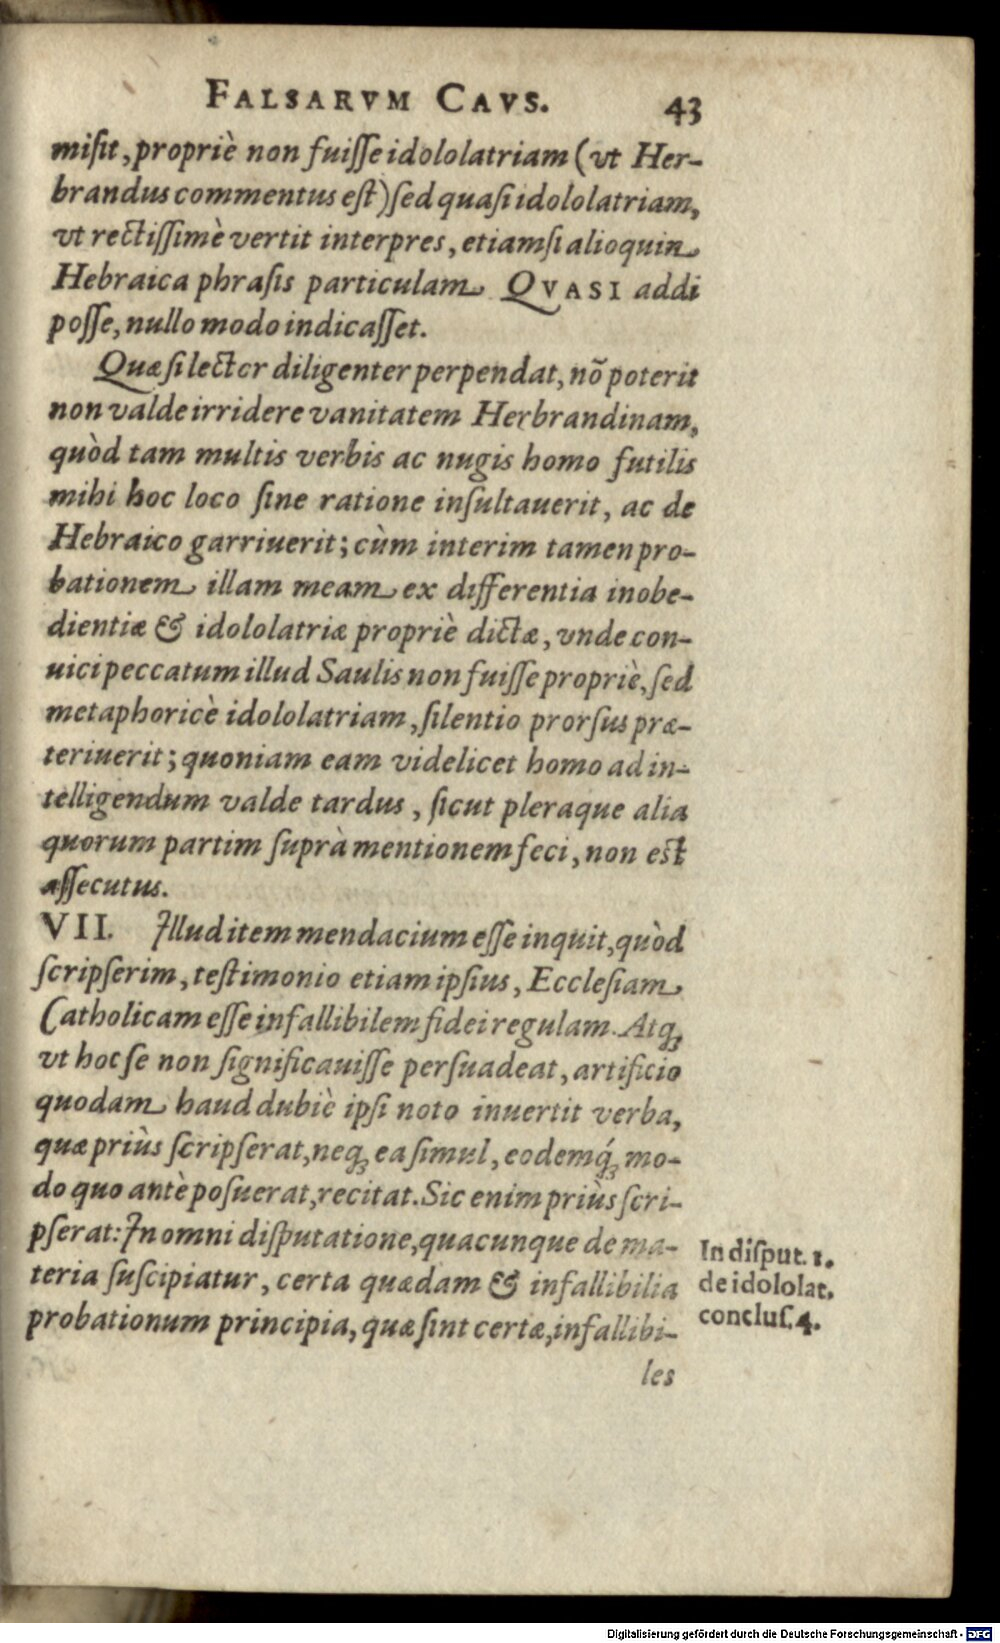 FALSARVM CAVS. 43
misit, propriè non fuisse idololatriam (vt Her-
brandus commentus est) sed quasi idololatriam,
vt rectissimè vertit interpres, etiamsi alioquin
Hebraica phrasis particulam QVASI addi
posse, nullo modo indicasset.
Quæ si lector diligenter perpendat, nõ poterit
non valde irridere vanitatem Herbrandinam,
quòd tam multis verbis ac nugis homo futilis
mihi hoc loco sine ratione insultauerit, ac de
Hebraico garriuerit; cùm interim tamen pro-
bationem illam meam ex differentia inobe-
dientiæ & idololatriæ propriè dictæ, vnde con-
uici peccatum illud Saulis non fuisse propriè, sed
metaphoricè idololatriam, silentio prorsus præ-
teriuerit; quoniam eam videlicet homo ad in-
telligendum valde tardus, sicut pleraque alia
quorum partim suprà mentionem feci, non est
assecutus.
VII. Illud item mendacium esse inquit, quòd
scripserim, testimonio etiam ipsius, Ecclesiam
Catholicam esse infallibilem fidei regulam. Atq;
vt hoc se non significauisse persuadeat, artificio
quodam haud dubiè ipsi noto inuertit verba,
quæ priùs scripserat, neq; ea simul, eodemq́; mo-
do quo antè posuerat, recitat. Sic enim priùs scri-
pserat: In omni disputatione, quacunque de ma-
teria suscipiatur, certa quædam & infallibilia
probationum principia, quæ sint certæ, infallibi-
les
In disput. 1.
de idololat.
conclus. 4.
Digitalisierung gefördert durch die Deutsche Forschungsgemeinschaft - DFG